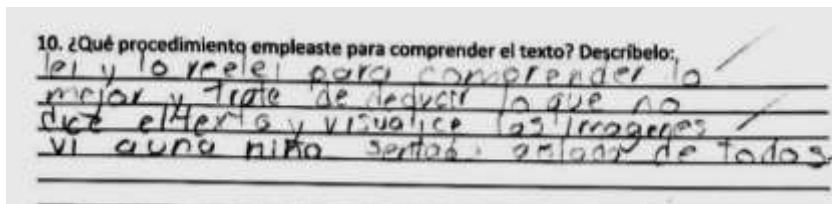 10. ¿Qué procedimiento empleaste para comprender el texto? Descríbelo:
lei y lo reelei para comprender lo
mejor y trate de deducir lo que no
dice el texto y visualice las imagenes
vi a una niño sentado de todos